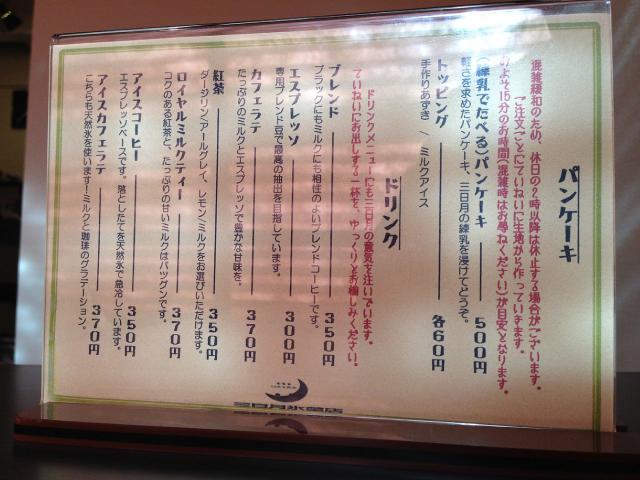 パンケーキ
混雑緩和のため、休日の2時以降は休止する場合がございます。
ご注文ごとにていねいに生地から作っていきます。
およそ15分のお時間(混雑時はお尋ねください)が目安となります。
(練乳でたべる)パンケーキ 500円
軽さを求めたパンケーキ、三日月の練乳を浸けてどうぞ。
トッピング 各60円
手作りあずき / ミルクアイス
ドリンク
ドリンクメニューにも三日月の意気を注いでいます。
ていねいにお出しする一杯を、ゆっくりとお楽しみください。
ブレンド 350円
ブラックにもミルクにも相性のよいブレンドコーヒーです。
エスプレッソ 300円
専用ブレンド豆で最高の抽出を目指しています。
カフェラテ 370円
たっぷりのミルクとエスプレッソで豊かな甘味を。
紅茶 350円
ダージリン/アールグレイ、レモン/ミルクをお選びいただけます。
ロイヤルミルクティー 370円
コクのある紅茶と、たっぷりの甘いミルクはバツグンです。
アイスコーヒー 350円
エスプレッソベースです。落としたてを天然氷で急冷しています。
アイスカフェラテ 370円
こちらも天然氷を使います!ミルクと珈琲のグラデーション。
三日月氷菓店